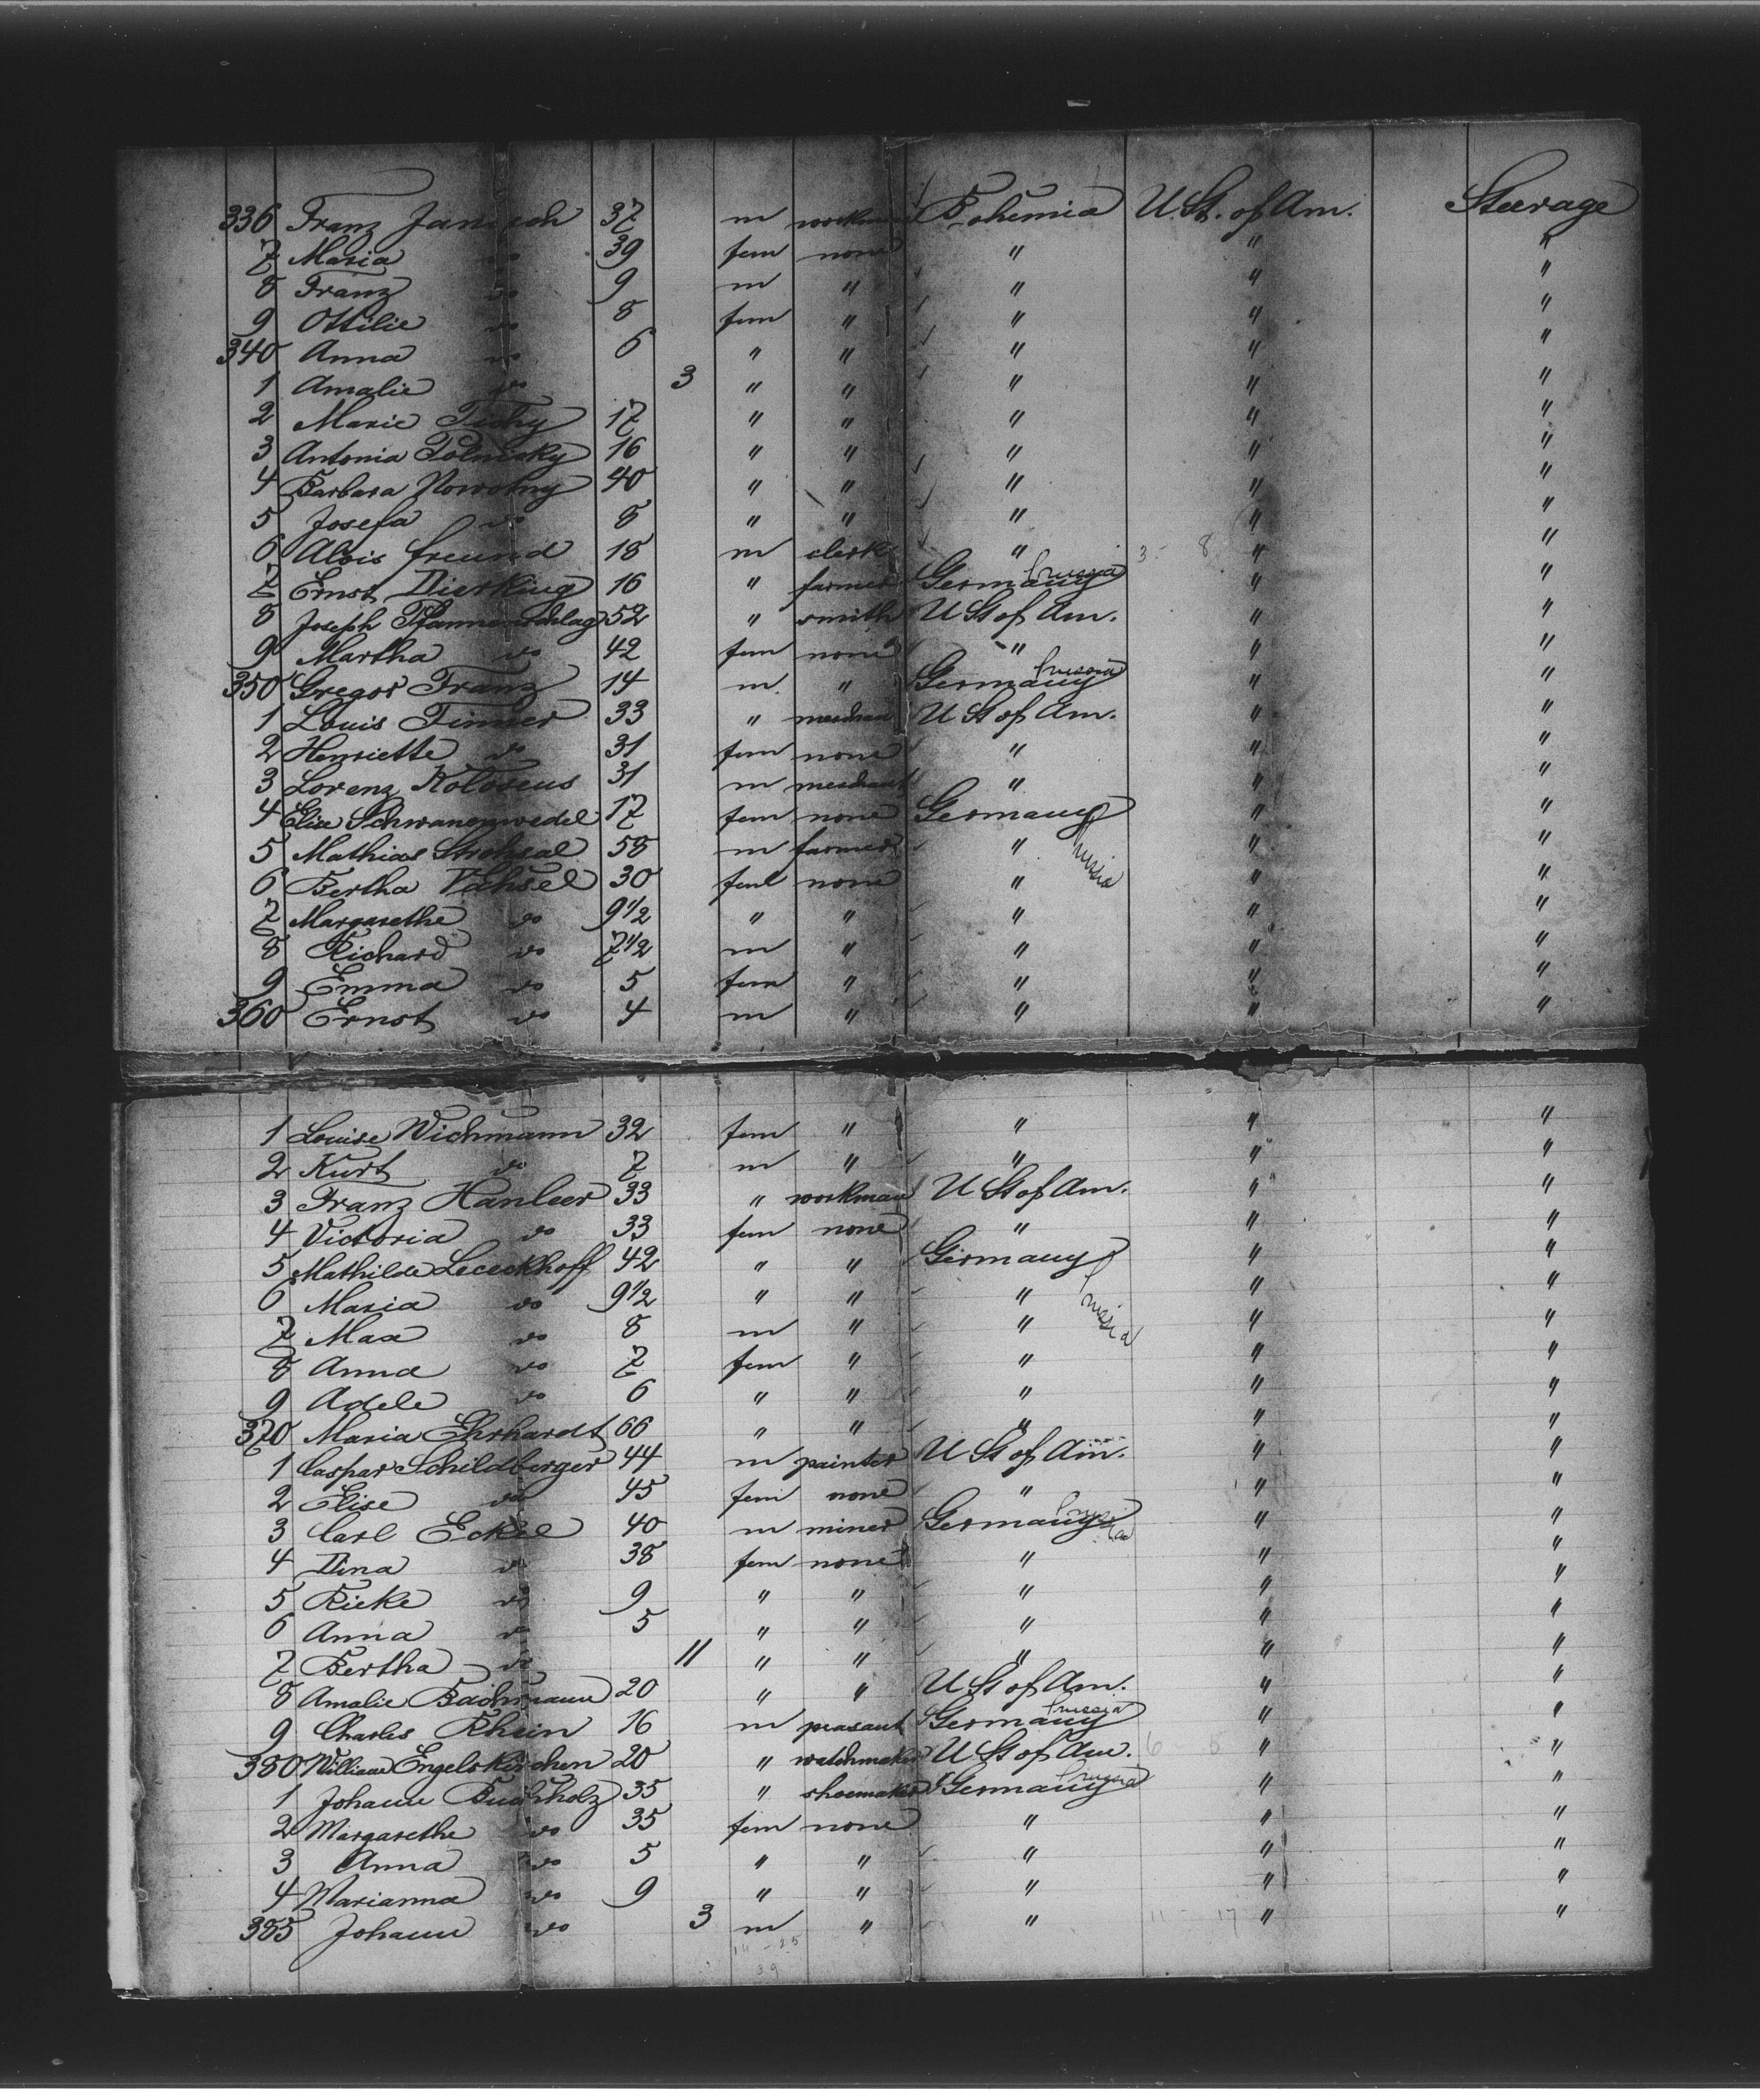 336 Franz Janisch 37 m workman Bohemia U. St. of Am. Steerage
7 Maria do 39 fem none " " "
8 Franz do 9 m " " " "
9 Ottilie do 8 fem " " " "
340 Anna do 6 " " " " "
1 Amalie do 3 " " " " "
2 Marie Tichy 17 " " " " "
3 Antonia 16 " " " " "
4 Barbara Nowotny 40 " " " " "
5 Josefa do 8 " " " " "
6 Alois freund 18 m clerk " 3 - 8 " "
7 Ernst Dierking 16 " farmer Germany Prussia " "
8 Joseph Pfannenschlag 52 " smith U St of Am. " "
9 Martha do 42 fem none " " "
350 Gregor Franz 14 m. " Germany Prussia " "
1 Louis 33 " merchant U St of Am. " "
2 Henriette do 31 fem none " " "
3 Lorenz Koloseus 31 m merchant " " "
4 Elise Schwanenwedel 17 fem none Germany " "
5 Mathias Strohsal 58 m farmer " Prussia " "
6 Bertha Vahsel 30 feml none " " "
7 Margarethe do 9 1/2 " " " " "
8 Richard do 7 1/2 m " " " "
9 Emma do 5 fem " " " "
360 Ernst do 4 m " " " "
1 Louise Wichmann 32 fem " " " "
2 Kurt do 7 m " " " "
3 Franz Hanleer 33 " workman U St of Am. " "
4 Victoria do 33 fem none " " "
5 Mathilde Lececkhoff 42 " " Germany " "
6 Maria do 9 1/2 " " " Prussia " "
7 Max do 8 m " " " "
8 Anna do 7 fem " " " "
9 Adele do 6 " " " " "
370 Maria Ehrhardt 66 " " " " "
1 Caspar Schildberger 44 m painter U St of Am. " "
2 Elise do 45 fem none " " "
3 Carl Eckel 40 m miner Germany Prussia " "
4 Dina do 38 fem none " " "
5 Rieke do 9 " " " " "
6 Anna do 5 " " " " "
7 Bertha do 11 " " " " "
8 Amalie Bachmann 20 " " U St of Am. " "
9 Charles Rhein 16 m peasant Germany Prussia " "
380 William Engelskirchen 20 " watchmaker U St of Am. 6 - 5 " "
1 Johann Buchholz 35 " shoemaker Germany Prussia " "
2 Margarethe do 35 fem none " " "
3 Anna do 5 " " " " "
4 Marianna do 9 " " " " "
385 Johann do 3 m " " 11 - 17 " "
14 - 25
39